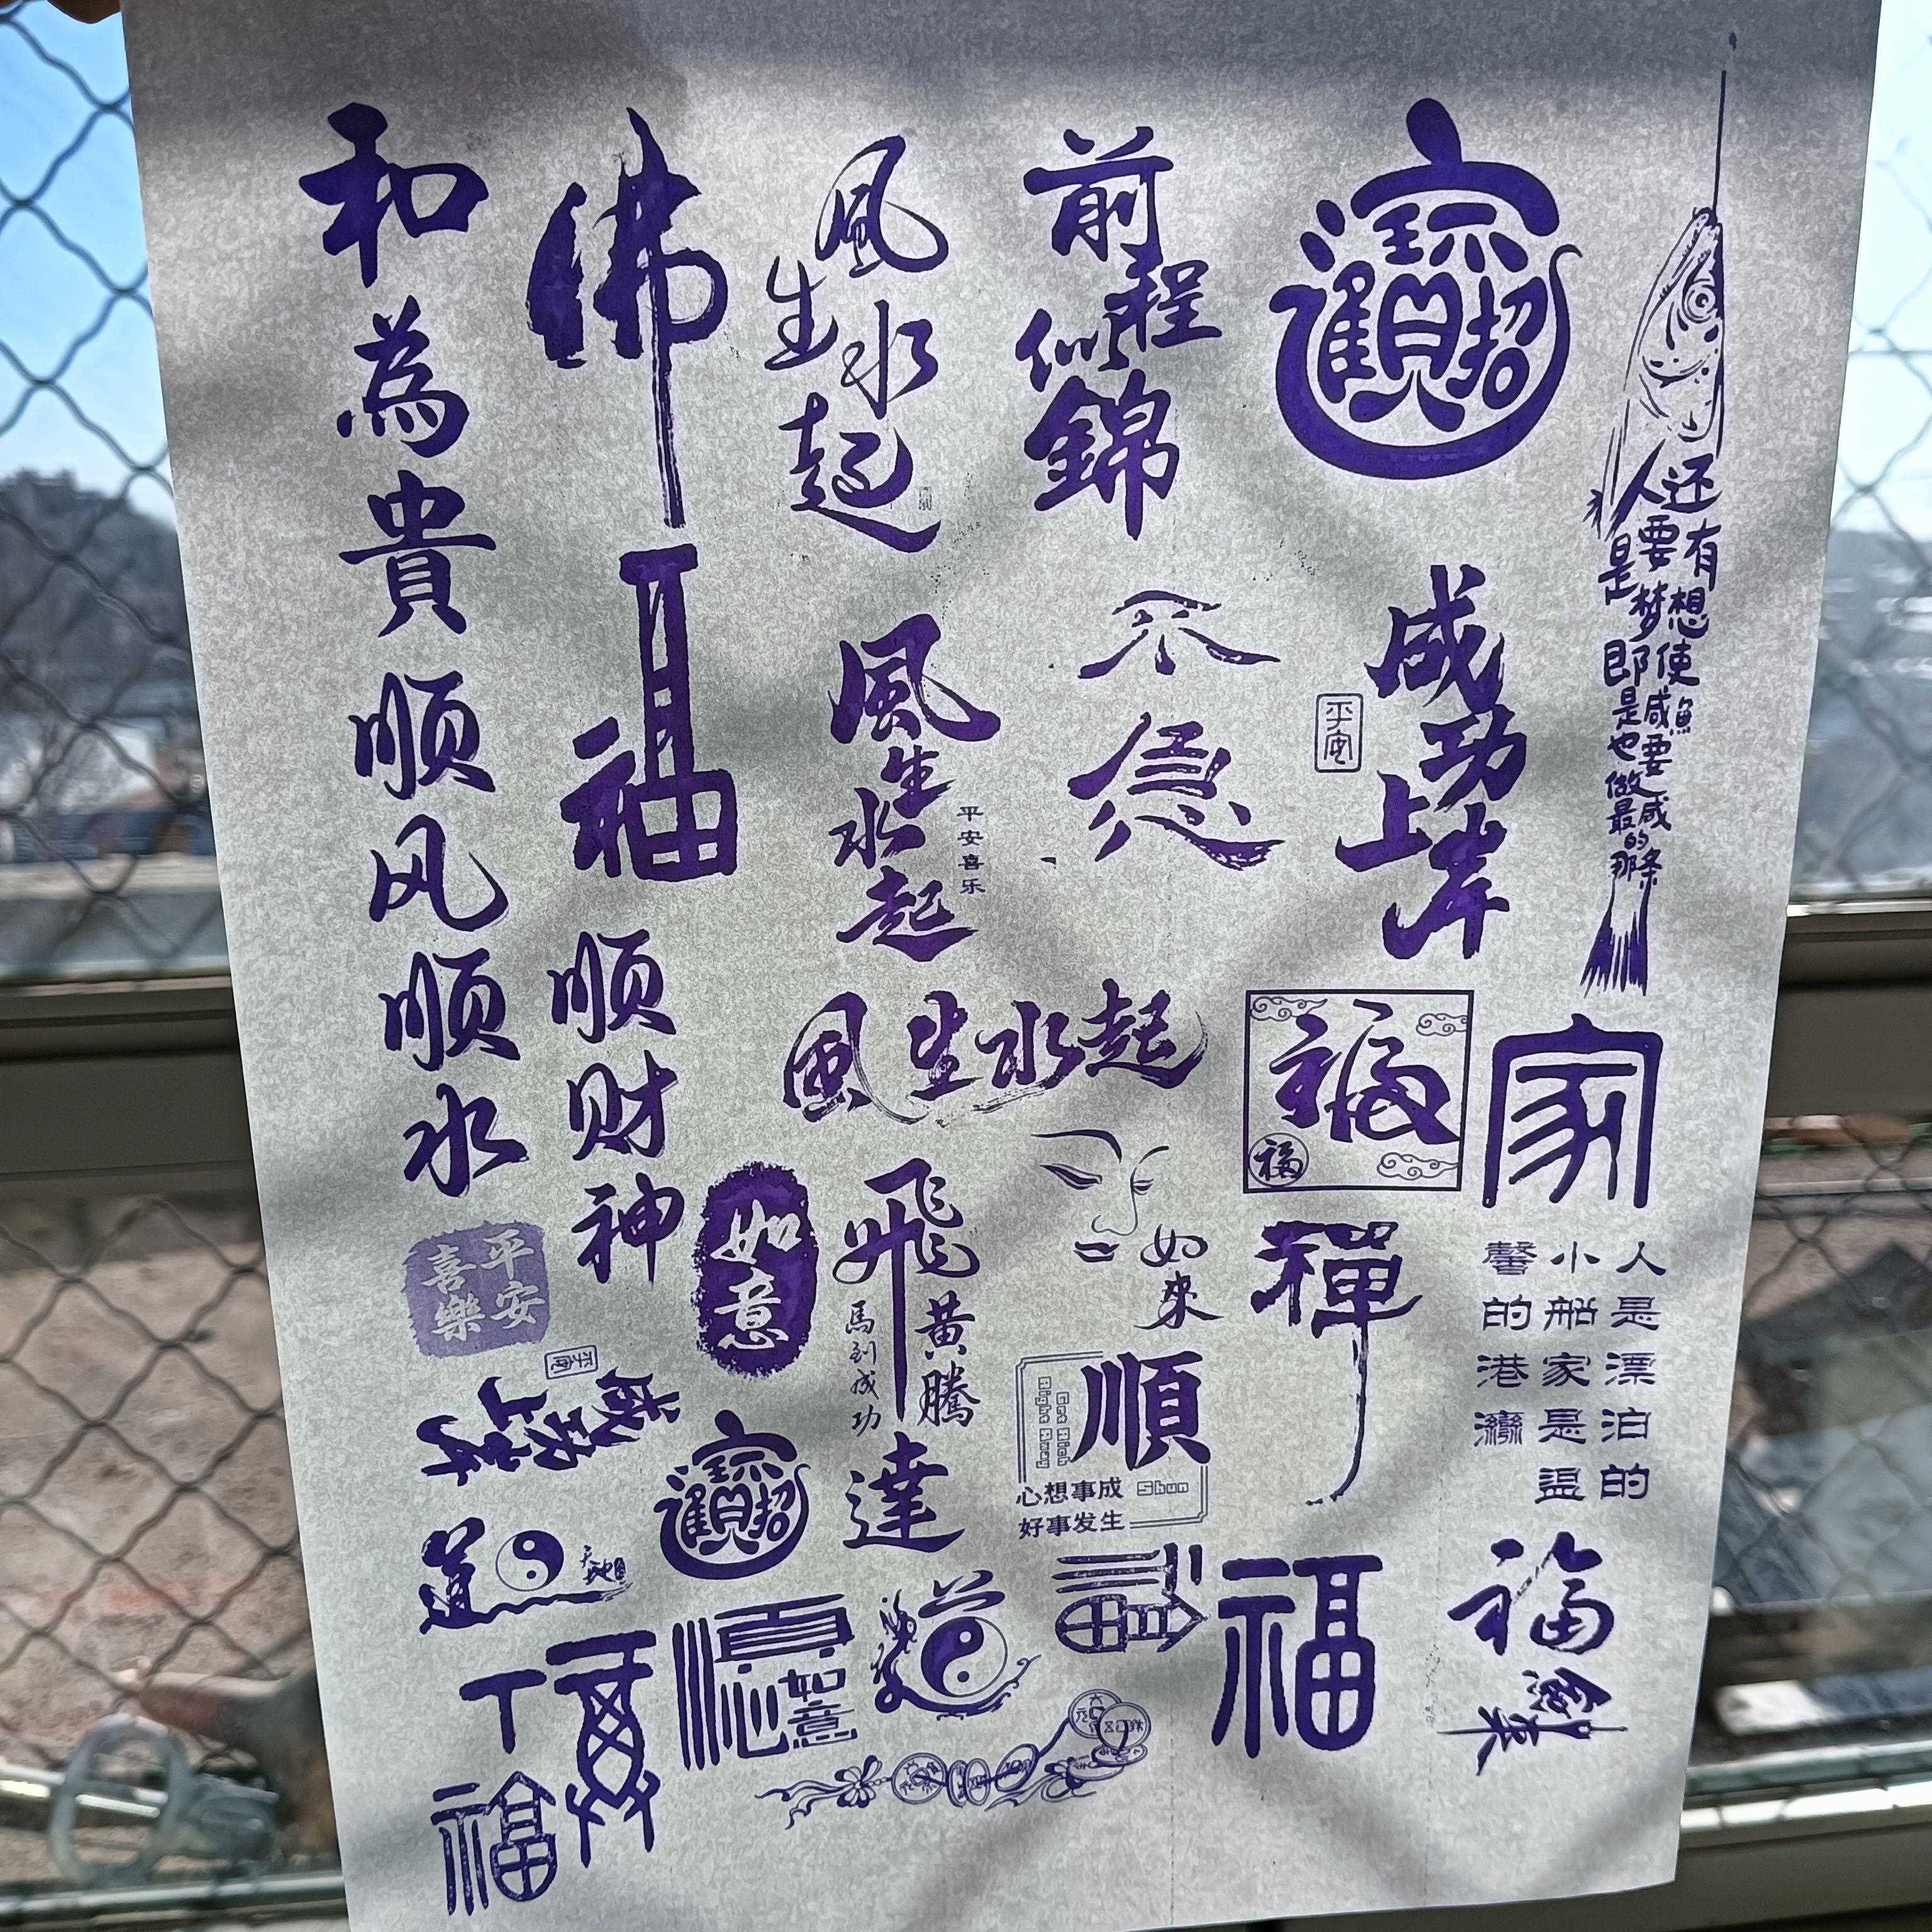 和為貴
佛
風生水起
前程似錦
招財進寶
人还是要有梦想即使是咸魚也要做最咸的那条
福
風生水起
平安喜乐
不急
成功上岸
平安
顺风顺水
顺财神
風生水起
福
福
家
平安喜樂
如意
飛黄騰
達
馬到成功
如來
禪
人是漂泊的
小船家是盌
馨的港灣
平安
成功上岸
招財進寶
順
Shun
心想事成
好事发生
道
福
順
如意
道
福
福
丁
福